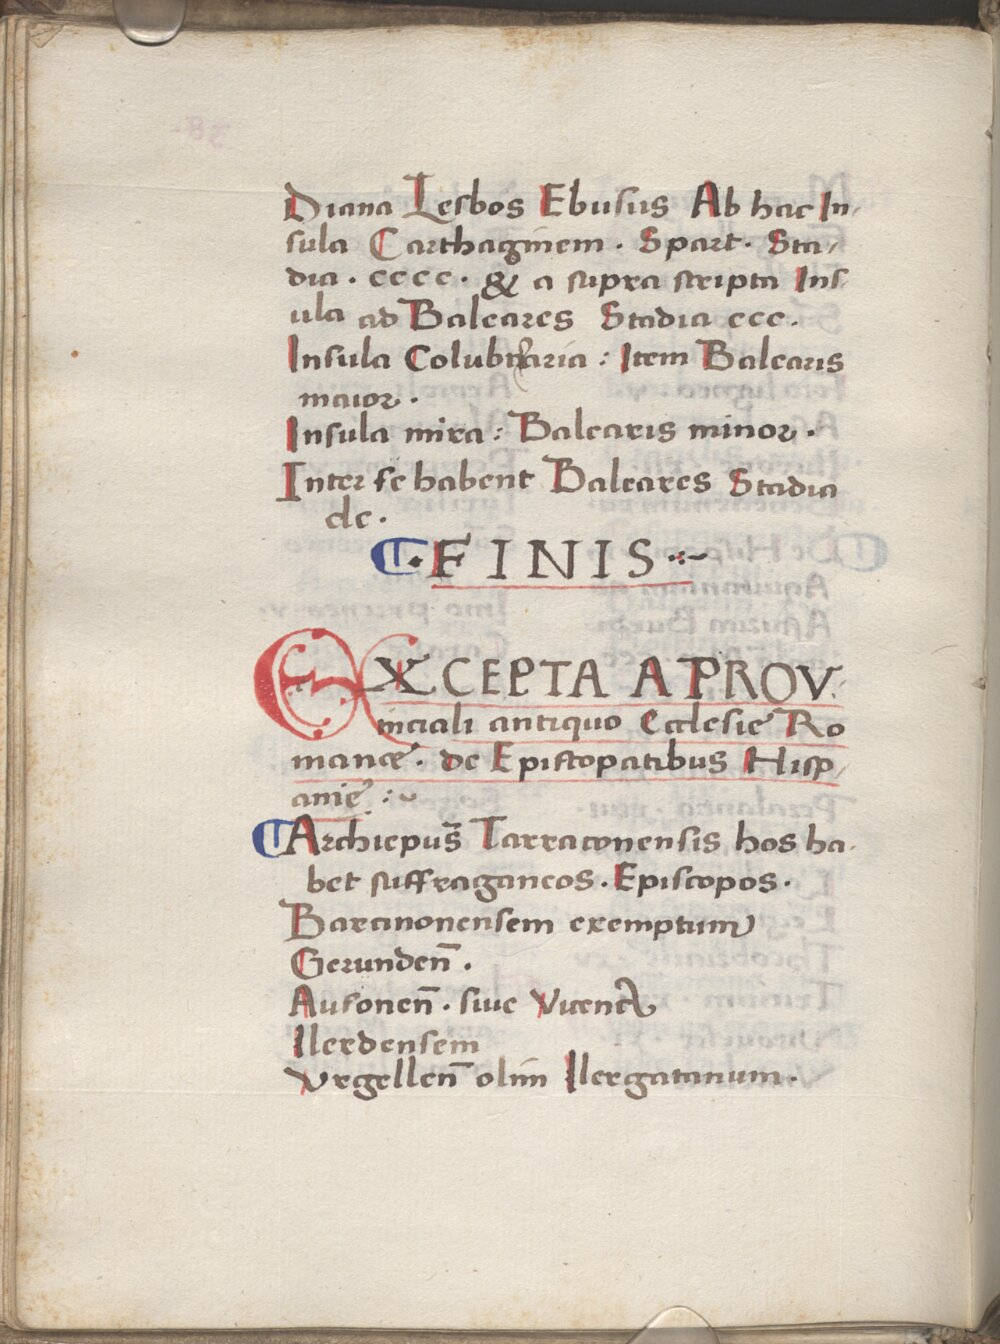 Diana Lesbos Ebusus Ab hac In,
sula Carthaginem . Spart . Sta,
dia . cccc . & a supra scripta Ins,
ula ad Baleares Stadia ccc.
Insula Colubraria : Item Balearis
maior .
Insula mira : Balearis minor .
Inter se habent Baleares Stadia
dc .
FINIS
EXCEPTA A PROV
inciali antiquo Ecclesie Ro
mane . de Episcopatibus Hisp,
anie :
Archiepus̄ Tarraconensis hos ha,
bet suffraganeos . Episcopos .
Barcinonensem exemptum
Gerunden̄ .
Ausonen̄ . sive
Ilerdensem
Vrgellen̄ olim Ilergatanum .
38